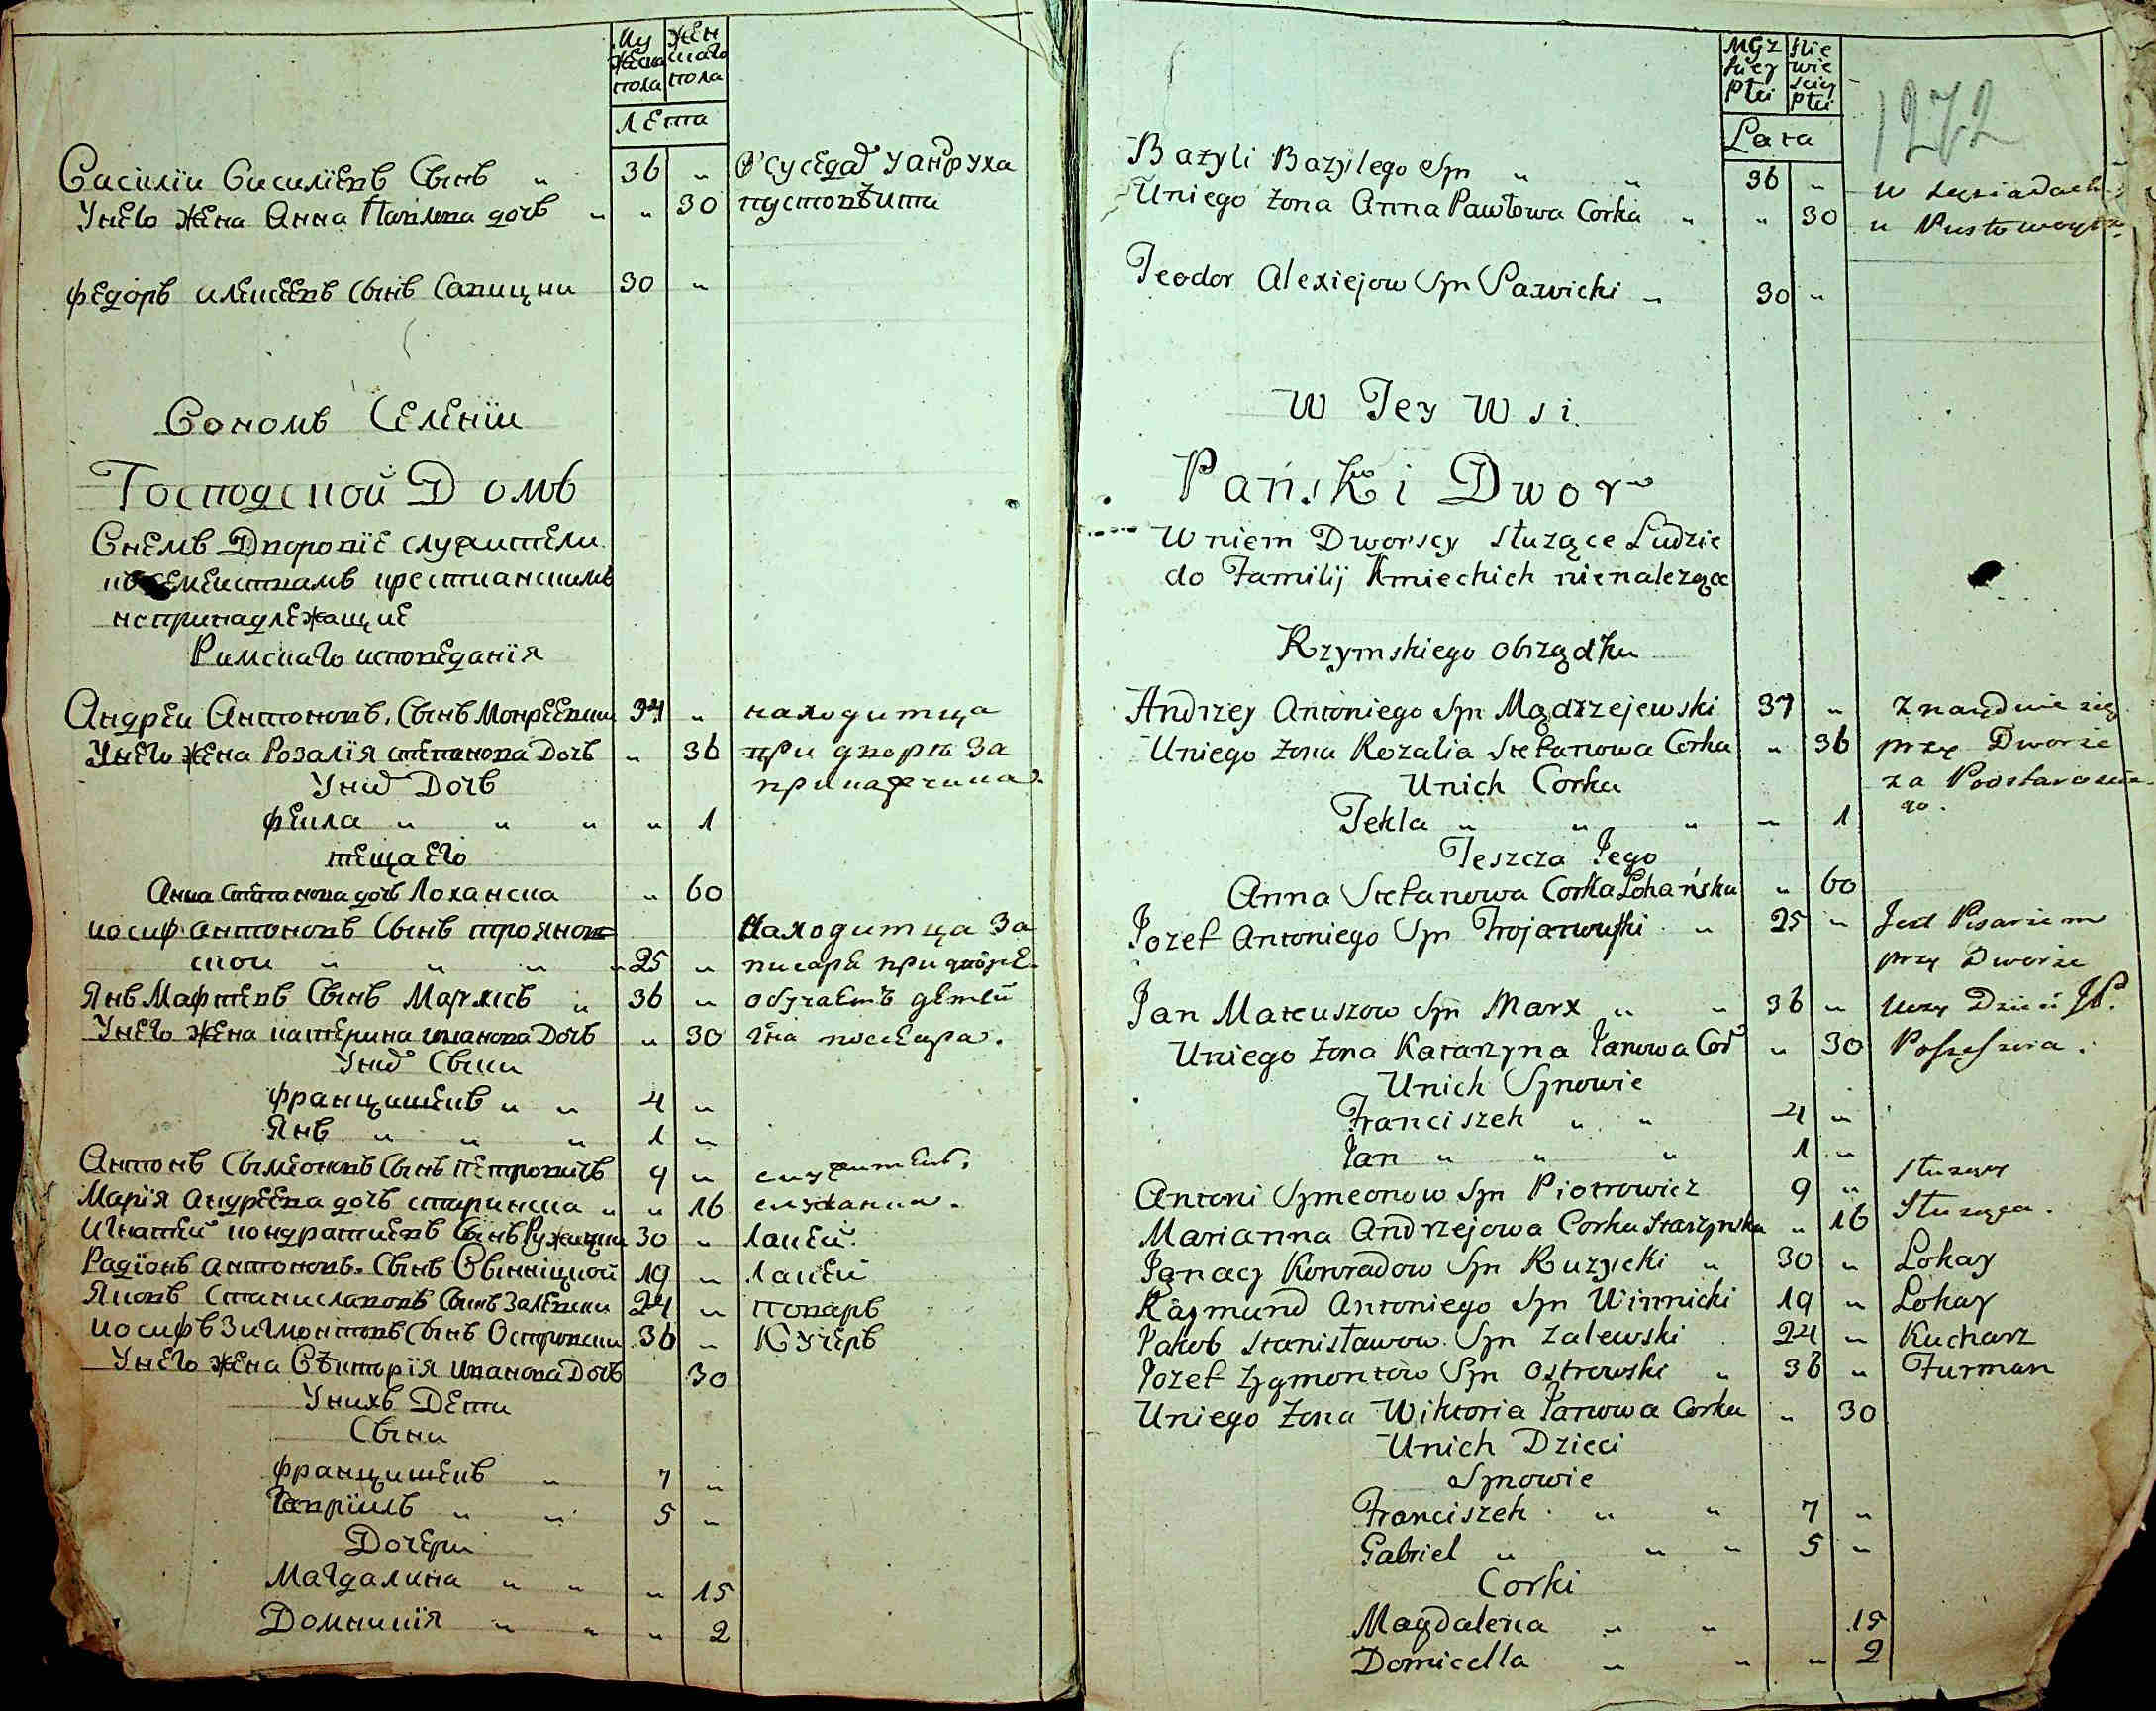 Му жеска пола
Жен скаго пола
Лета
Василіи Василіевъ Сынъ " 36 " В' суседах у андруха
Унего жена Анна Павлова дочъ " " 30 пустовъита
Федоръ алексеевъ Сынъ Савицки 30 "
Вономъ Селеніи
Господской Домъ
Внемъ Дворовіе служители
къ семеиствамъ крестианскимъ
непринадлежащие
Римскаго исповеданія
Андреи Антоновъ Сынъ Мондреевски 37 " находитца
Унего жена Розалія степанова Дочъ " 36 при дворе За
Уних Дочъ прикажчика.
фекла " " " " 1
теща его
Анна Степанова дочъ Лоханска " 60
иосиф антоновъ Сынъ трояновъ Находитца За
ской " " " " 25 " писаря при дворе.
Янъ Мафтевъ Сынъ Марксъ " 36 " обучаетъ детей
Унего жена катерина иванова Дочъ " 30 гна поссесора.
Уних Сыни
францишекъ " " 4 "
Янъ " " " 1 "
Антонъ Сымеоновъ Сынъ Петровичъ 9 " служителъ.
Марія андреева дочъ старинска " " 16 служанка.
Игнатей кондратиевъ Сынъ Ружицки 30 " Лакей.
Радіонъ антоновъ Сынъ Вѣнніцкой 19 " Лакей
Яковъ Станиславовъ Сынъ Залевски 24 " поваръ
иосифъ Зигмонтовъ Сынъ Островски 36 " Кучеръ
Унего жена Вѣкторія иванова Дочъ 30
Унихъ Дети
Сыни
францишекъ " 7 "
Гавріилъ " " 5 "
Дочери
Магдалина " " " 15
Доминикія " " " 2
Męz kiey płci
Nie wie sciey płci
Lata
1272
Bazyli Bazylego Syn " " 36 " w sąsiadach
Uniego żona Anna Pawłowa Corka " " 30 u Pustowoyta
Teodor Alexiejow Syn Sawicki " 30 "
W Tey Wsi
Pański Dwor
W niem Dworscy służące Ludzie
do Familij Kmieckich nienalezące
Rzymskiego obrządku
Andrzey Antoniego Syn Mądrzejewski 37 " Znayduie się
Uniego żona Rozalia Stefanowa Corka " 36 przy Dworze
Unich Corka za Podstarosie-
Tekla " " " " 1 go.
Teszcza Jego
Anna Stefanowa Corka Lohańska " 60
Jozef Antoniego Syn Trojanowski " 25 " Jest Pisarzem
przy Dworze
Jan Mateuszow Syn Marx " " 36 " Uczy Dzieci JP.
Uniego żona Katarzyna Janowa Cor " 30 Possesora.
Unich Synowie
Franciszek " " 4 "
Jan " " " 1 "
Antoni Symeonow Syn Piotrowicz 9 " służący
Marianna Andrzejowa Corka Starzynska " 16 Służąca.
Jgnacy Konradow Syn Ruzycki " 30 " Lokay
Raymund Antoniego Syn Winnicki 19 " Lokay
Jakob Stanisławow Syn Zalewski 24 " Kucharz
Jozef Zygmontow Syn Ostrowski " 36 " Furman
Uniego żona Wiktoria Janowa Corka " 30
Unich Dzieci
Synowie
Franciszek " " 7 "
Gabriel " " " 5 "
Corki
Magdalena " " 15
Domicella " " " 2